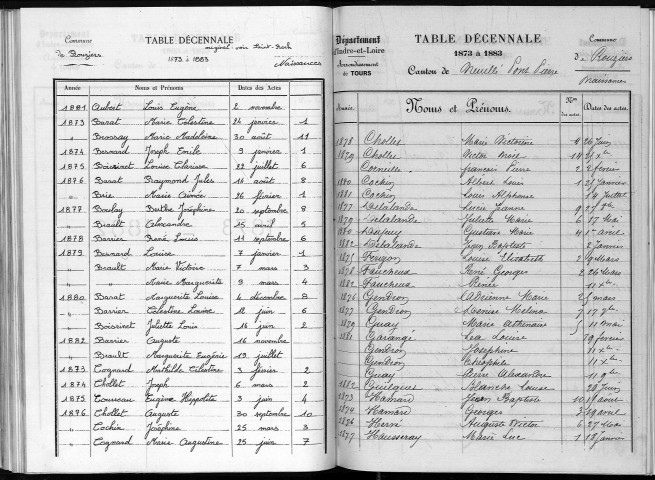 Commune
de Rouziers
TABLE DÉCENNALE
original, voir Saint-Roch
1873 à 1883
Naissances
Année Noms et Prénoms Dates des Actes
1881 Aubert Louis Eugène 2 novembre
1873 Barat Marie Célestine 24 janvier 1
" Brossay Marie Madeleine 30 août 11
1874 Besnard Joseph Emile 9 janvier 1
1875 Boissinet Louise Clarisse 22 juillet 6
1876 Barat Raymond Jules 16 août 8
" Brie Marie Aimée 26 février 1
1877 Boulay Berthe Joséphine 20 septembre 8
" Brault Alexandre 25 avril 5
1878 Barrier René Louis 11 septembre 6
1879 Besnard Louise 7 janvier 1
" Brault Marie Victoire 7 mars 3
" " Marie Marguerite 9 mars 4
1880 Barat Marguerite Louise 4 décembre 8
" Barrier Célestine Louise 12 juin 6
" Boissinet Juliette Louise 16 juin 2
1882 Barrier Auguste 16 novembre
" Brault Marguerite Eugénie 19 juillet
1873 Cognard Mathilde Célestine 3 février 2
1874 Chollet Joseph 6 mars 2
1875 Courceau Eugène Hippolyte 3 juin 4
1876 Chollet Auguste 30 septembre 10
" Cochin Joséphine 25 mars 3
" Cognard Marie Augustine 25 juin 7
Département
d'Indre-et-Loire
Arrondissement
de TOURS
TABLE DÉCENNALE
1873 à 1883
Canton de Neuillé Pont Pierre
Commune
de Rouziers
Naissances
Année Noms et Prénoms. Nos des actes Dates des actes
1878 Chollet Marie Victorine 4 26 Juin
1879 Chollet Victor Noël 14 25 Xbre
" Corneille François Pierre 2 2 février
1880 Cochin Albert Louis 1 25 Janvier
1881 Cochin Louis Alphonse 9 Juillet
1877 Delalande Lucie Jeanne 9
1879 Delalande Juliette Marie 6 17 Mai
1880 Dupuy Gustave Marie 4 17 avril
1882 Delalande Jean Baptiste 2 Janvier
1871 Louise Elisabeth 2 9 Mars
1878 Faucheux René Georges 2 26 Mars
1882 Faucheux Renée
1876 Gendron Adrienne Marie 2 mars
1877 Gendron Louise Melina 7
1879 Guay Marie 5 11 mai
1881 Garangé Léa Louise 19 février
" Gendron Joséphine
" Gendron Théophile
" Guay Pierre Alexandre
1882 Blanche Louise 29 Juin
1873 Hamard Jean Baptiste 10 19 avril
1874 Hamard Georges 3 19 avril
1876 Hervé Auguste Victor 6 27 Mai
1877 Housseray Marie Luc 1 18 Janvier